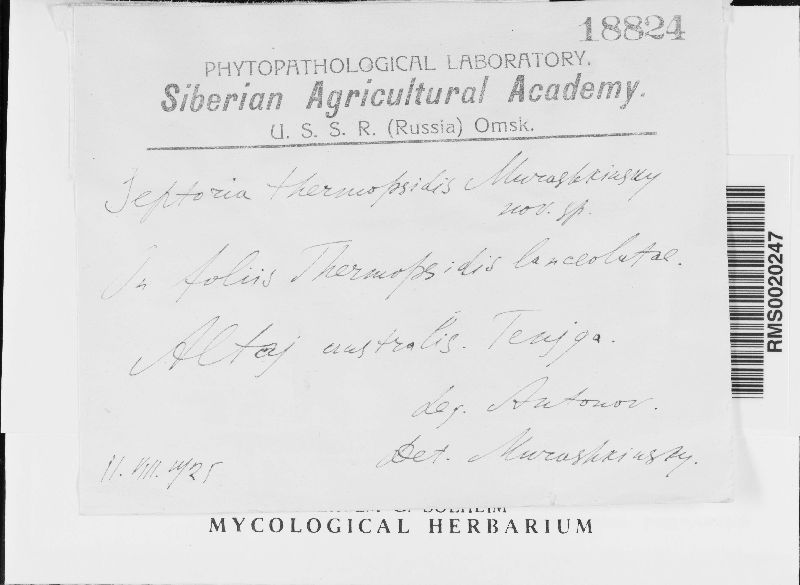 18824
PHYTOPATHOLOGICAL LABORATORY.
Siberian Agricultural Academy.
U. S. S. R. (Russia) Omsk.
Septoria thermopsidis Murashkinsky
nov. sp.
In foliis Thermopsidis lanceolatae.
Altaj australis. Tenjga.
Leg. Antonov.
Det. Murashkinsky.
11. VIII. 1925
RMS0020247
G. SOLHEIM
MYCOLOGICAL HERBARIUM